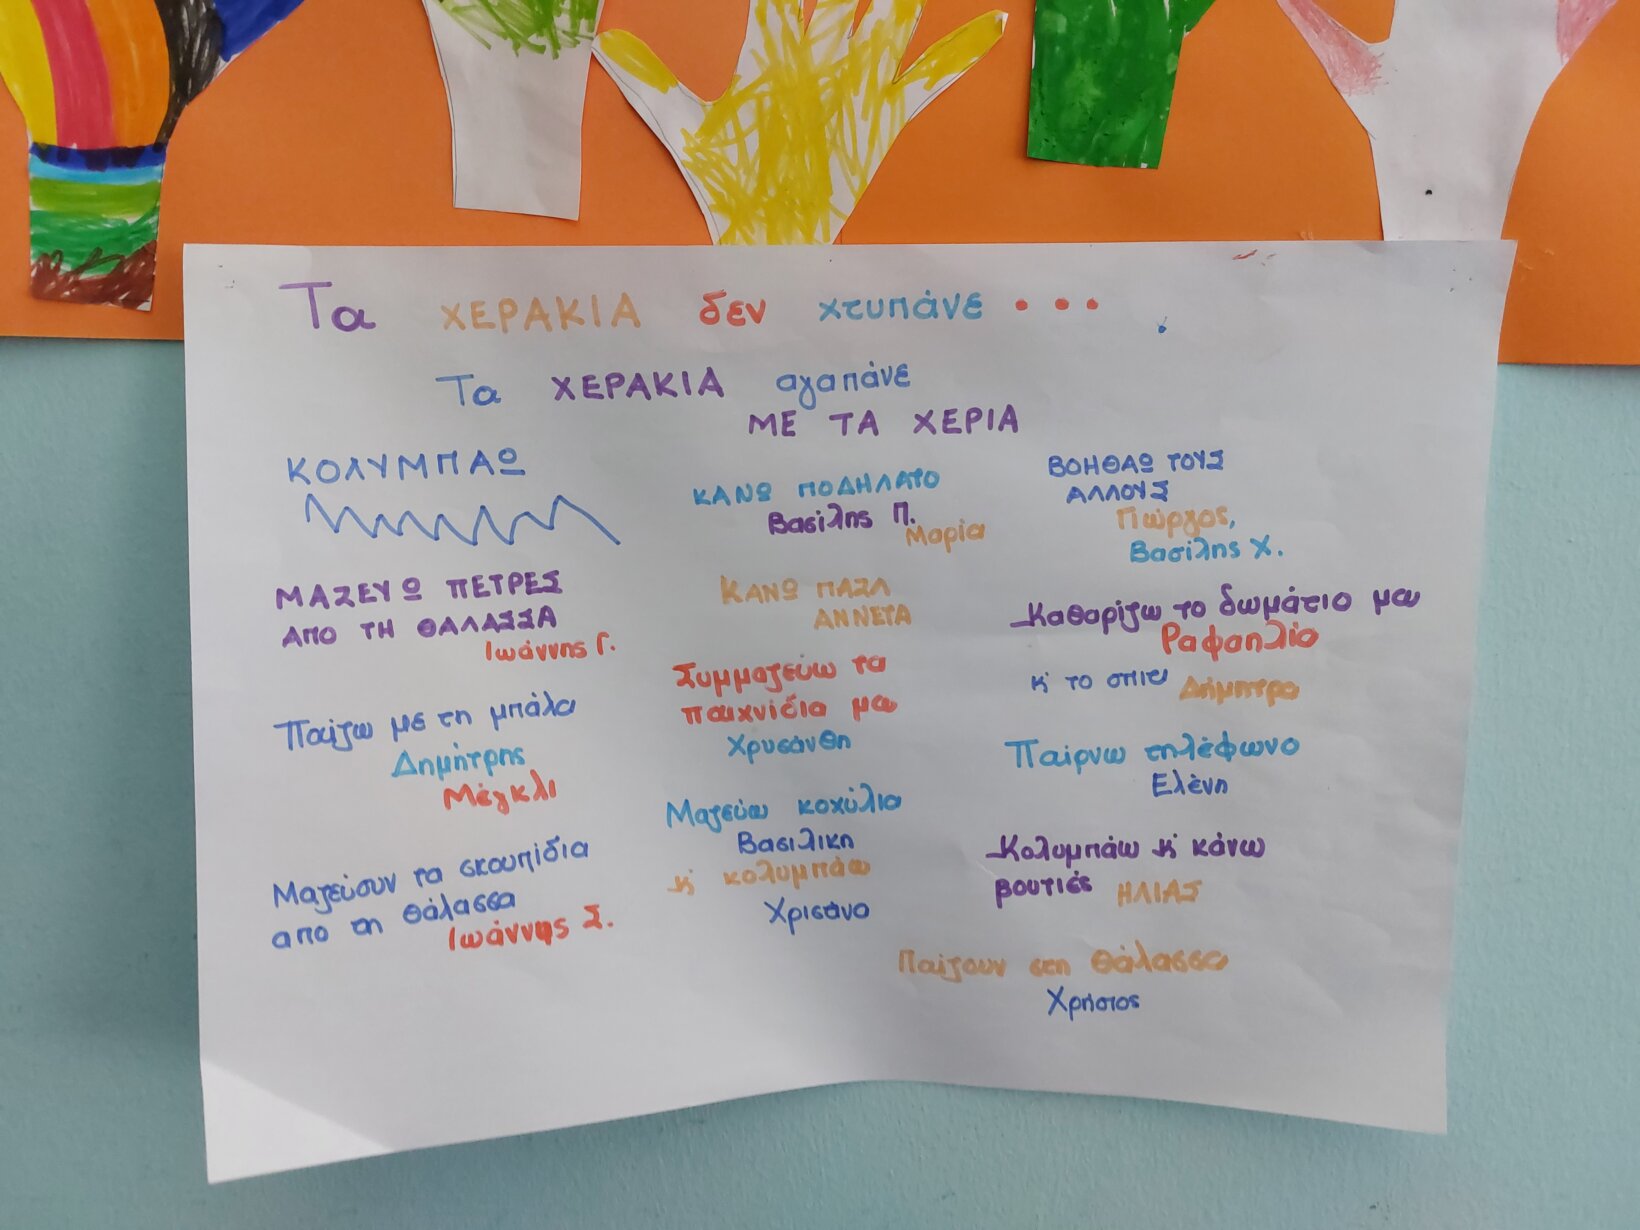 Τα ΧΕΡΑΚΙΑ δεν χτυπάνε ...
Τα ΧΕΡΑΚΙΑ αγαπάνε
ΜΕ ΤΑ ΧΕΡΙΑ
ΚΟΛΥΜΠΑΩ
ΜΑΖΕΥΩ ΠΕΤΡΕΣ
ΑΠΟ ΤΗ ΘΑΛΑΣΣΑ
Ιωάννης Γ.
Παίζω με τη μπάλα
Δημήτρης
Μέγκλι
Μαζεύουν τα σκουπίδια
απο τη θάλασσα
Ιωάννης Σ.
ΚΑΝΩ ΠΟΔΗΛΑΤΟ
Βασίλης Π.
Μαρία
ΚΑΝΩ ΠΑΖΛ
ΑΝΝΕΤΑ
Συμμαζεύω τα
παιχνίδια μου
Χρυσάνθη
Μαζεύω κοχύλια
Βασιλικη
κ' κολυμπάω
Χρισάνα
ΒΟΗΘΑΩ ΤΟΥΣ
ΑΛΛΟΥΣ
Γιώργος,
Βασίλης Χ.
Καθαρίζω το δωμάτιο μου
Ραφαηλία
κ' το σπιτι Δήμητρα
Παίρνω τηλέφωνο
Ελένη
Κολυμπάω κ' κάνω
βουτιές ΗΛΙΑΣ
Παίζουν στη θάλασσα
Χρήστος